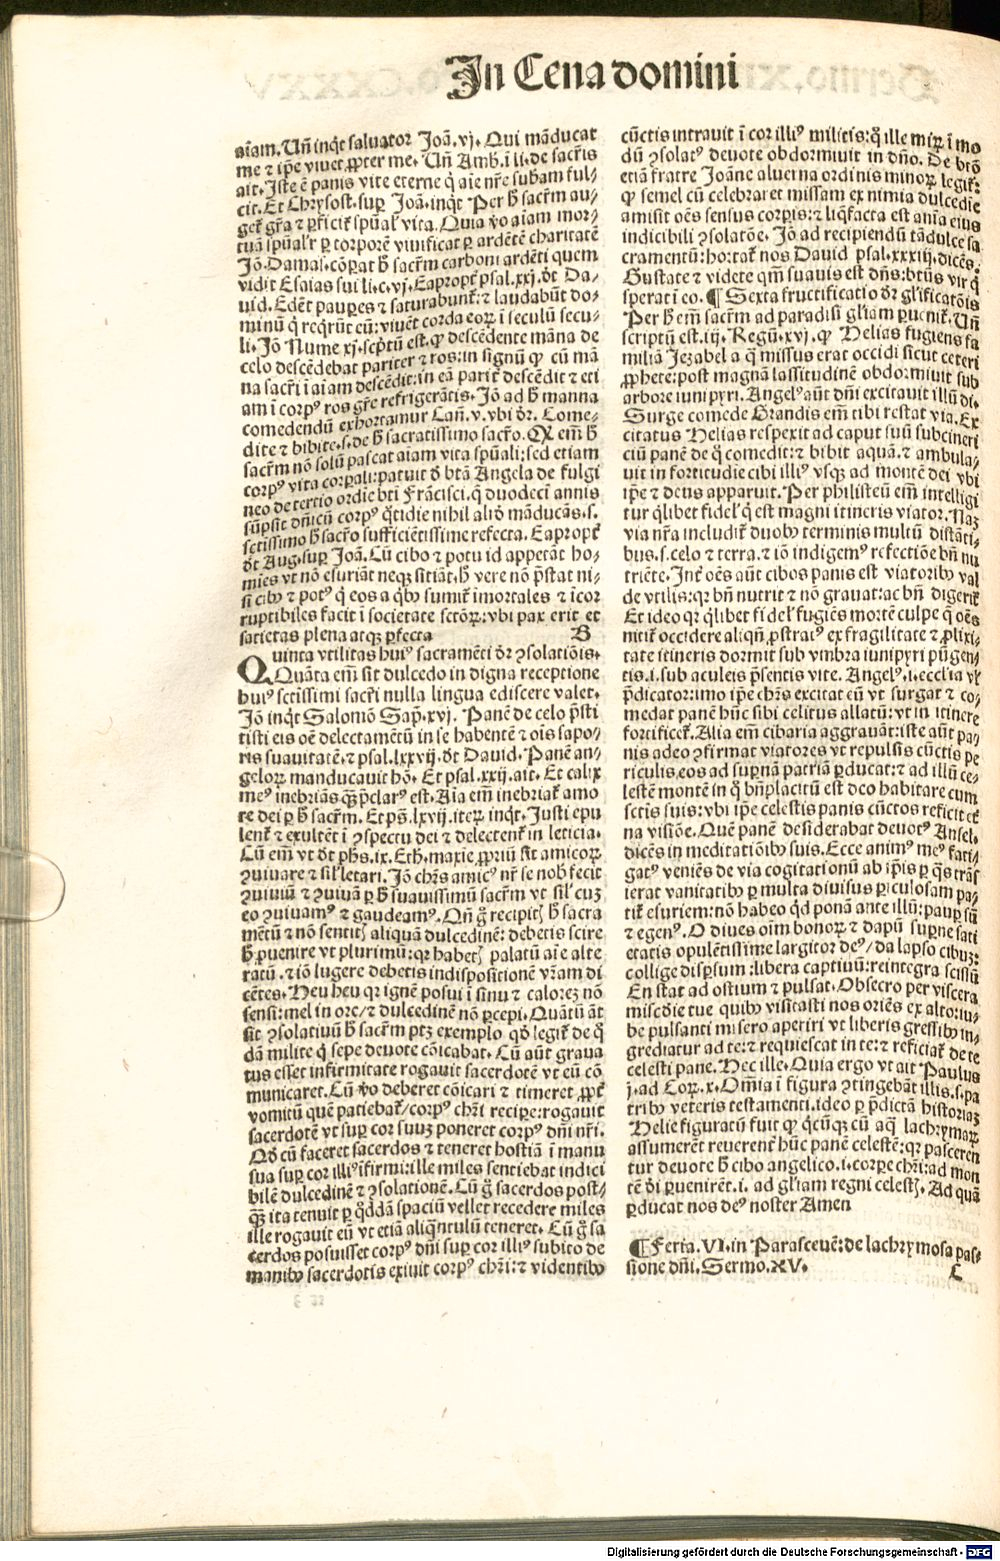 In Cena domini
aīam. Uñ inq̄t saluator Joā. vj. Qui māducat
me ⁊ ip̄e viuet ꝓpter me. Uñ Amb̄. ī li. de sacr̄is
ait. Iste ē panis vite eterne q̄ aīe nr̄e subam ful-
cit. Et Chrysost. suꝑ Joā. inq̄t Per h̄ sacr̄m au-
get᷑ gr̄a ⁊ ꝑficit᷑ spūal᷑ vita. Quia ꝟo aīam mor-
tuā spūal᷑r ꝑ corporē viuificat ꝑ ardētē charitatē
Jō. Damas. cōꝑat h̄ sacr̄m carboni ardēti quem
vidit Esaias sui li. c. vj. Eapropt᷑ psal. xxj. d̄t Da-
uid. Edēt pauꝑes ⁊ saturabunt᷑: ⁊ laudabūt do-
minū q̄ reqr̄ūt eū: viuēt corda eoꝝ ī seculū secu-
li. Jō Nume xj. sc̄ptū est. ꝙ descendente māna de
celo descēdebat pariter ⁊ ros: in signū ꝙ cū mā
na sacr̄i ī aīam descēdit: in eā parit᷑ descēdit ⁊ eti
am ī corpꝰ ros gr̄e refrigerātis. Jō ad h̄ manna
comedendū exhortamur Cañ. v. vbi d̄r. Come-
dite ⁊ bibite. s. de h̄ sacratissimo sacr̄o. Q̄ em̄ h̄
sacr̄m nō solū pascat aīam vita spūali: sed etiam
corpꝰ vita corꝑali: patuit d̄ btā Angela de fulgi
neo de tertio ordīe bti Frācisci. q̄ duodecī annis
sūpsit dn̄icū corpꝰ q̄tidie nihil aliō māducās. s.
sctissimo h̄ sacr̄o sufficiētissime refecta. Eapropt᷑
d̄t Aug. suꝑ Joā. Cū cibo ⁊ potu id appetāt ho-
mīes vt nō esuriāt neqꝫ sitiāt. h̄ vere nō p̄stat ni-
si cibꝰ ⁊ potꝰ q̄ eos a q̄bꝰ sumit᷑ īmortales ⁊ īcor
ruptibiles facit ī societate sctōꝝ: vbi pax erit et
satietas plena atqꝫ ꝑfecta B
Quinta vtilitas huiꝰ sacramēti d̄r ꝯsolatiōis.
Quāta em̄ sit dulcedo in digna receptione
huiꝰ sctissimi sacr̄i nulla lingua ediscere valet.
Jō inq̄t Salomō Sap̄. xvj. Panē de celo p̄sti
tisti eis oē delectamētū in se habentē ⁊ oīs sapo-
ris suauitatē. ⁊ psal. lxxvij. d̄t Dauid. Panē an-
geloꝝ manducauit hō. Et psal. xxij. ait. Et calix
meꝰ inebriās q̄ꝫ p̄clarꝰ est. Aīa em̄ inebriat᷑ amo
re dei ꝑ h̄ sacr̄m. Et pš. lxvij. iteꝝ inq̄t. Justi epu
lent᷑ ⁊ exultēt ī ꝯspectu dei ⁊ delectent᷑ in leticia.
Cū em̄ vt d̄t ph̄s. ix. Eth. maxīe ꝓpriū sit amicoꝝ
ꝯuiuare ⁊ sil᷑ letari. Jō chr̄s amicꝰ nr̄ se nob̄ fecit
ꝯuiuiū ⁊ ꝯuiuā ꝑ h̄ suauissimū sacr̄m vt sil᷑ cuꝫ
eo ꝯuiuamꝰ ⁊ gaudeamꝰ. Qn̄ ḡ recipit᷑ h̄ sacra
mētū ⁊ nō sentit᷑ aliquā dulcedinē: debetis scire
h̄ ꝓuenire vt plurimū: qr habet᷑ palatū aīe alte
ratū. ⁊ iō lugere debetis indispositionē vr̄am di
cētes. Heu heu qr ignē posui ī sinu ⁊ caloreꝫ nō
sensi: mel in ore/ ⁊ dulcedinē nō ꝑcepi. Quātū āt
sit ꝯsolatiuū h̄ sacr̄m ptꝫ exemplo qd̄ legit᷑ de q̄
dā milite q̄ sepe deuote cōicabat. Cū aūt graua
tus esset infirmitate rogauit sacerdotē vt eū cō
municaret. Cū ꝟo deberet cōicari ⁊ timeret ꝓpt᷑
vomitū quē patiebat᷑/ corpꝰ chr̄i reciꝑe: rogauit
sacerdotē vt suꝑ cor suuꝫ poneret corpꝰ dn̄i nr̄i.
Qd̄ cū faceret sacerdos ⁊ teneret hostiā ī manu
sua suꝑ cor illiꝰ īfirmi: ille miles sentiebat indici
bilē dulcedinē ⁊ ꝯsolationē. Cū ḡ sacerdos post-
q̄ꝫ ita tenuit ꝑ q̄ddā spaciū vellet recedere miles
ille rogauit eū vt etiā aliq̄ntulū teneret. Cū ḡ sa
cerdos posuisset corpꝰ dn̄i suꝑ cor illiꝰ subito de
manibꝰ sacerdotis exiuit corpꝰ chr̄i: ⁊ videntibꝰ
cūctis intrauit ī cor illiꝰ militis: q̄ ille miꝝ ī mo
dū ꝯsolatꝰ deuote obdormiuit in dn̄o. De btō
etiā fratre Joāne aluerna ordinis minoꝝ legit᷑:
ꝙ semel cū celebraret missam ex nimia dulcedīe
amisit oēs sensus corꝑis: ⁊ liq̄facta est aīa eius
indicibili ꝯsolatōe. Jō ad recipiendū tā dulce sa
cramentū: hortat᷑ nos Dauid psal. xxxiij. dicēs.
Gustate ⁊ videte qm̄ suauis est dn̄s: btūs vir q̄
sperat ī eo. ¶ Sexta fructificatio d̄r gl̄ificatōis
Per h̄ em̄ sacr̄m ad paradisi gl̄iam ꝑuenit᷑. Uñ
scriptū est. iij. Regū. xvj. ꝙ Helias fugiens fa
miliā Jezabel a q̄ missus erat occidi sicut ceteri
ꝓphete: post magnā lassitudinē obdormiuit sub
arbore iunipyri. Angelꝰ aūt dn̄i excitauit illū di.
Surge comede Grandis em̄ tibi restat via. Ex
citatus Helias respexit ad caput suū subcineri
ciū panē de q̄ comedit: ⁊ bibit aquā. ⁊ ambula-
uit in fortitudīe cibi illiꝰ vsqꝫ ad montē dei vbi
ip̄e ⁊ deus apparuit. Per philisteū em̄ intelligi
tur q̄libet fidel᷑ q̄ est magni itineris viator. Naꝫ
via nr̄a includit᷑ duobꝰ terminis multū distāti-
bus. s. celo ⁊ terra. ⁊ iō indigemꝰ refectiōe bn̄ nu
triēte. Int᷑ oēs aūt cibos panis est viatoribꝰ val
de vtilis: qr bn̄ nutrit ⁊ nō grauat: ac bn̄ digerit᷑
Et ideo qr q̄libet fidel᷑ fugiēs mortē culpe q̄ oēs
nitit᷑ occidere aliqn̄ ꝓstratꝰ ex fragilitate ⁊ ꝓlixi
tate itineris dormit sub vmbra iunipyri pūgen-
tis. i. sub aculeis p̄sentis vite. Angelꝰ. i. ecclīa vl᷑
p̄dicator: imo ip̄e chr̄s excitat eū vt surgat ⁊ co-
medat panē hūc sibi celitus allatū: vt in itinere
fortificet᷑. Alia em̄ cibaria aggrauāt: iste aūt pa-
nis adeo ꝯfirmat viatores vt repulsis cūctis pe
riculis. eos ad suꝑnā patriā ꝑducat: ⁊ ad illū ce-
lestē montē in q̄ bn̄placitū est deo habitare cum
sctis suis: vbi ip̄e celestis panis cūctos reficit et᷑
na visiōe. Quē panē desiderabat deuotꝰ Ansel.
dicēs in meditatiōibꝰ suis. Ecce animꝰ meꝰ fati-
gatꝰ veniēs de via cogitationū ab īp̄is ꝑ q̄s trās
ierat vanitatibꝰ ꝑ multa diuisus ꝑiculosam pa-
tit᷑ esuriem: nō habeo q̄d ponā ante illū: pauꝑ sū
⁊ egenꝰ. O diues oīm bonoꝝ ⁊ dapū suꝑne sati
etatis opulētissime largitor deꝰ/ da lapso cibuꝫ:
collige disꝑsum: libera captiuū: reintegra scissū
En stat ad ostium ⁊ pulsat. Obsecro per viscera
misc̄die tue quibꝰ visitasti nos oriēs ex alto: iu-
be pulsanti misero aperiri vt liberis gressibꝰ in-
grediatur ad te: ⁊ requiescat in te: ⁊ reficiat᷑ de te
celesti pane. Hec ille. Quia ergo vt ait Paulus
j. ad Coꝝ. x. Oīa ī figura ꝯtingebāt illis. s. pa
tribꝰ veteris testamenti. ideo ꝑ p̄dictā historiaꝫ
Helie figuratū fuit ꝙ q̄cūqꝫ cū aq̄ lachrymaꝝ
assumerēt reuerent᷑ hūc panē celestē: qr pasceren
tur deuote h̄ cibo angelico. i. corꝑe chr̄i: ad mon
tē d̄i ꝑuenirēt. i. ad gl̄iam regni celestꝭ. Ad quā
ꝑducat nos deꝰ noster Amen
¶ Feria. VI. in Parasceuē: de lachrymosa pas-
sione dn̄i. Sermo. XV. C
Digitalisierung gefördert durch die Deutsche Forschungsgemeinschaft - DFG